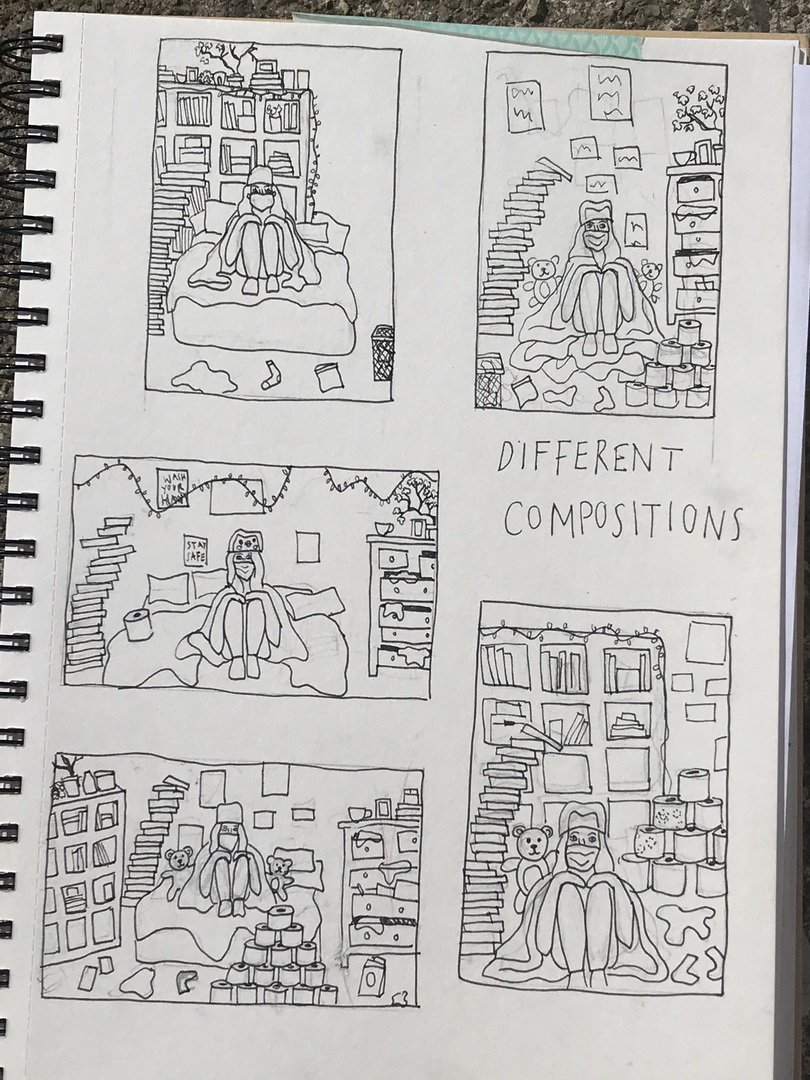 WASH
YOUR
HANDS
STAY
SAFE
DIFFERENT
COMPOSITIONS